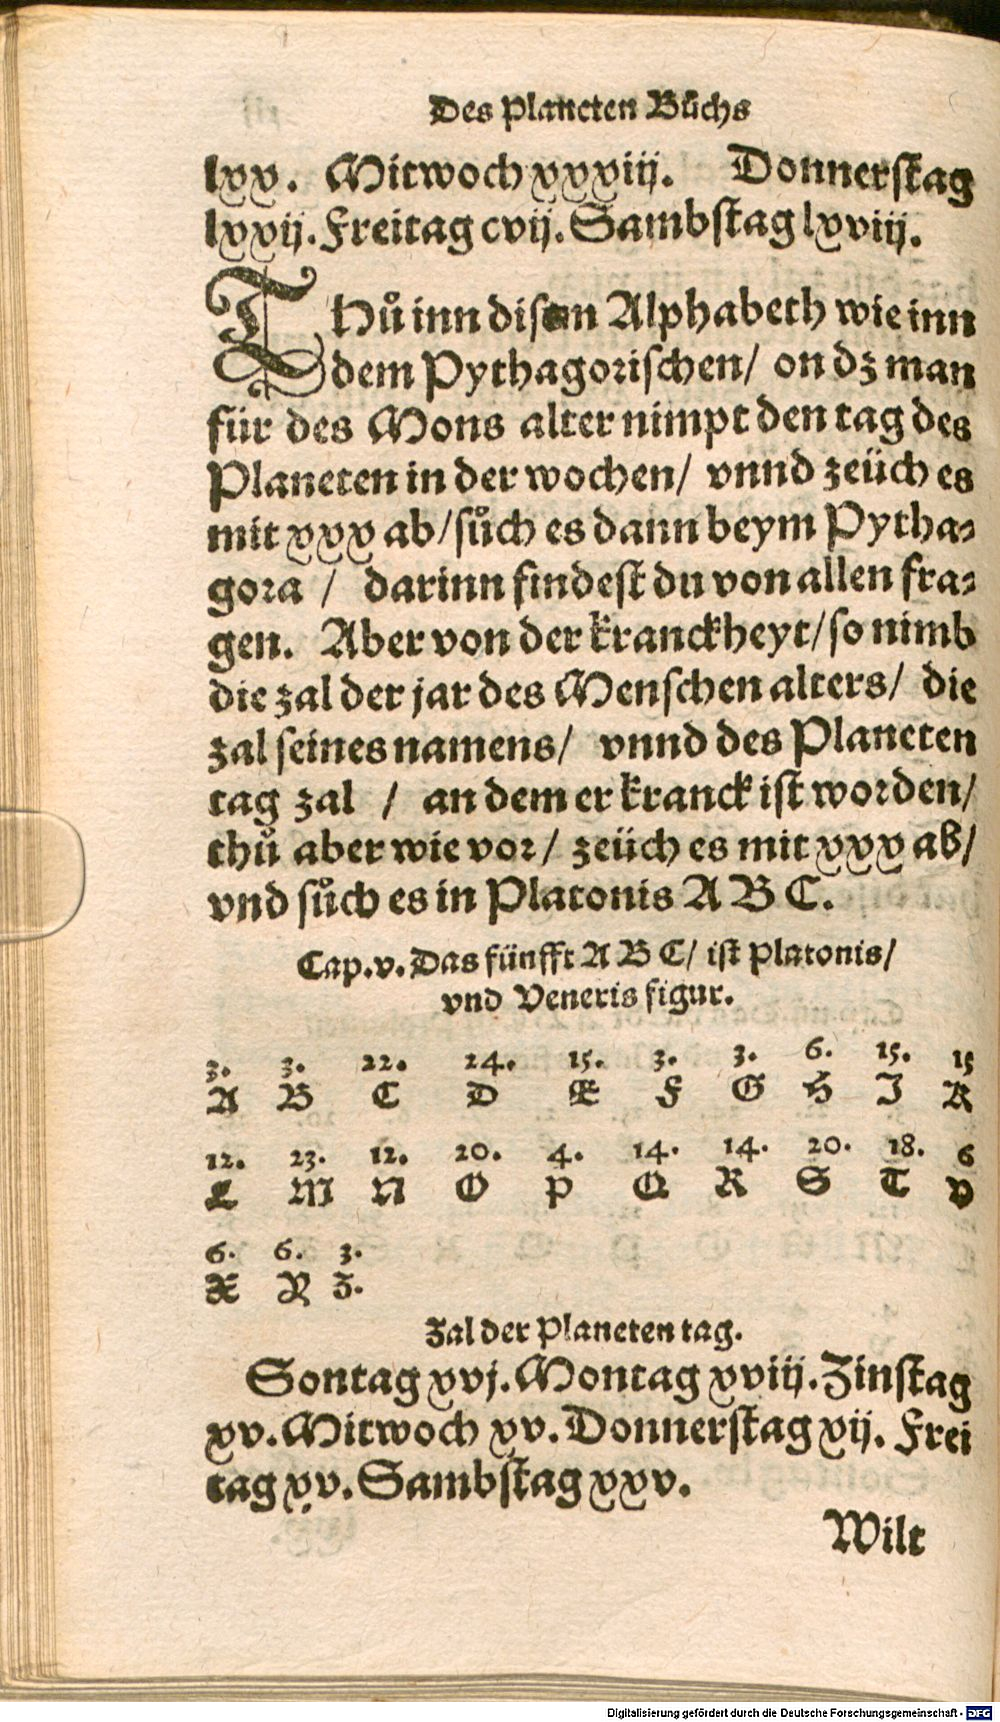 Des Planeten Bůchs
lxx. Mitwoch xxxiij. Donnerstag
lxxij. Freitag cvij. Sambstag lxviij.
Thů inn disem Alphabeth wie inn
dem Pythagorischen/ on dz man
für des Mons alter nimpt den tag des
Planeten in der wochen/ vnnd zeüch es
mit xxx ab/sůch es dann beym Pytha-
gora / darinn findest du von allen fra-
gen. Aber von der kranckheyt/so nimb
die zal der jar des Menschen alters/ die
zal seines namens/ vnnd des Planeten
tag zal / an dem er kranck ist worden/
thů aber wie vor/ zeüch es mit xxx ab/
vnd sůch es in Platonis A B C.
Cap.v. Das fünfft A B C/ ist Platonis/
vnd Veneris figur.
3. 3. 22. 24. 15. 3. 3. 6. 15. 15
A B C D E F G H I K
12. 23. 12. 20. 4. 14. 14. 20. 18. 6
L M N O P Q R S T V
6. 6. 3.
X Y Z.
Zal der Planeten tag.
Sontag xvj. Montag xviij. Zinstag
xv. Mitwoch xv. Donnerstag xij. Frei
tag xv. Sambstag xxv.
Wilt
Digitalisierung gefördert durch die Deutsche Forschungsgemeinschaft - DFG